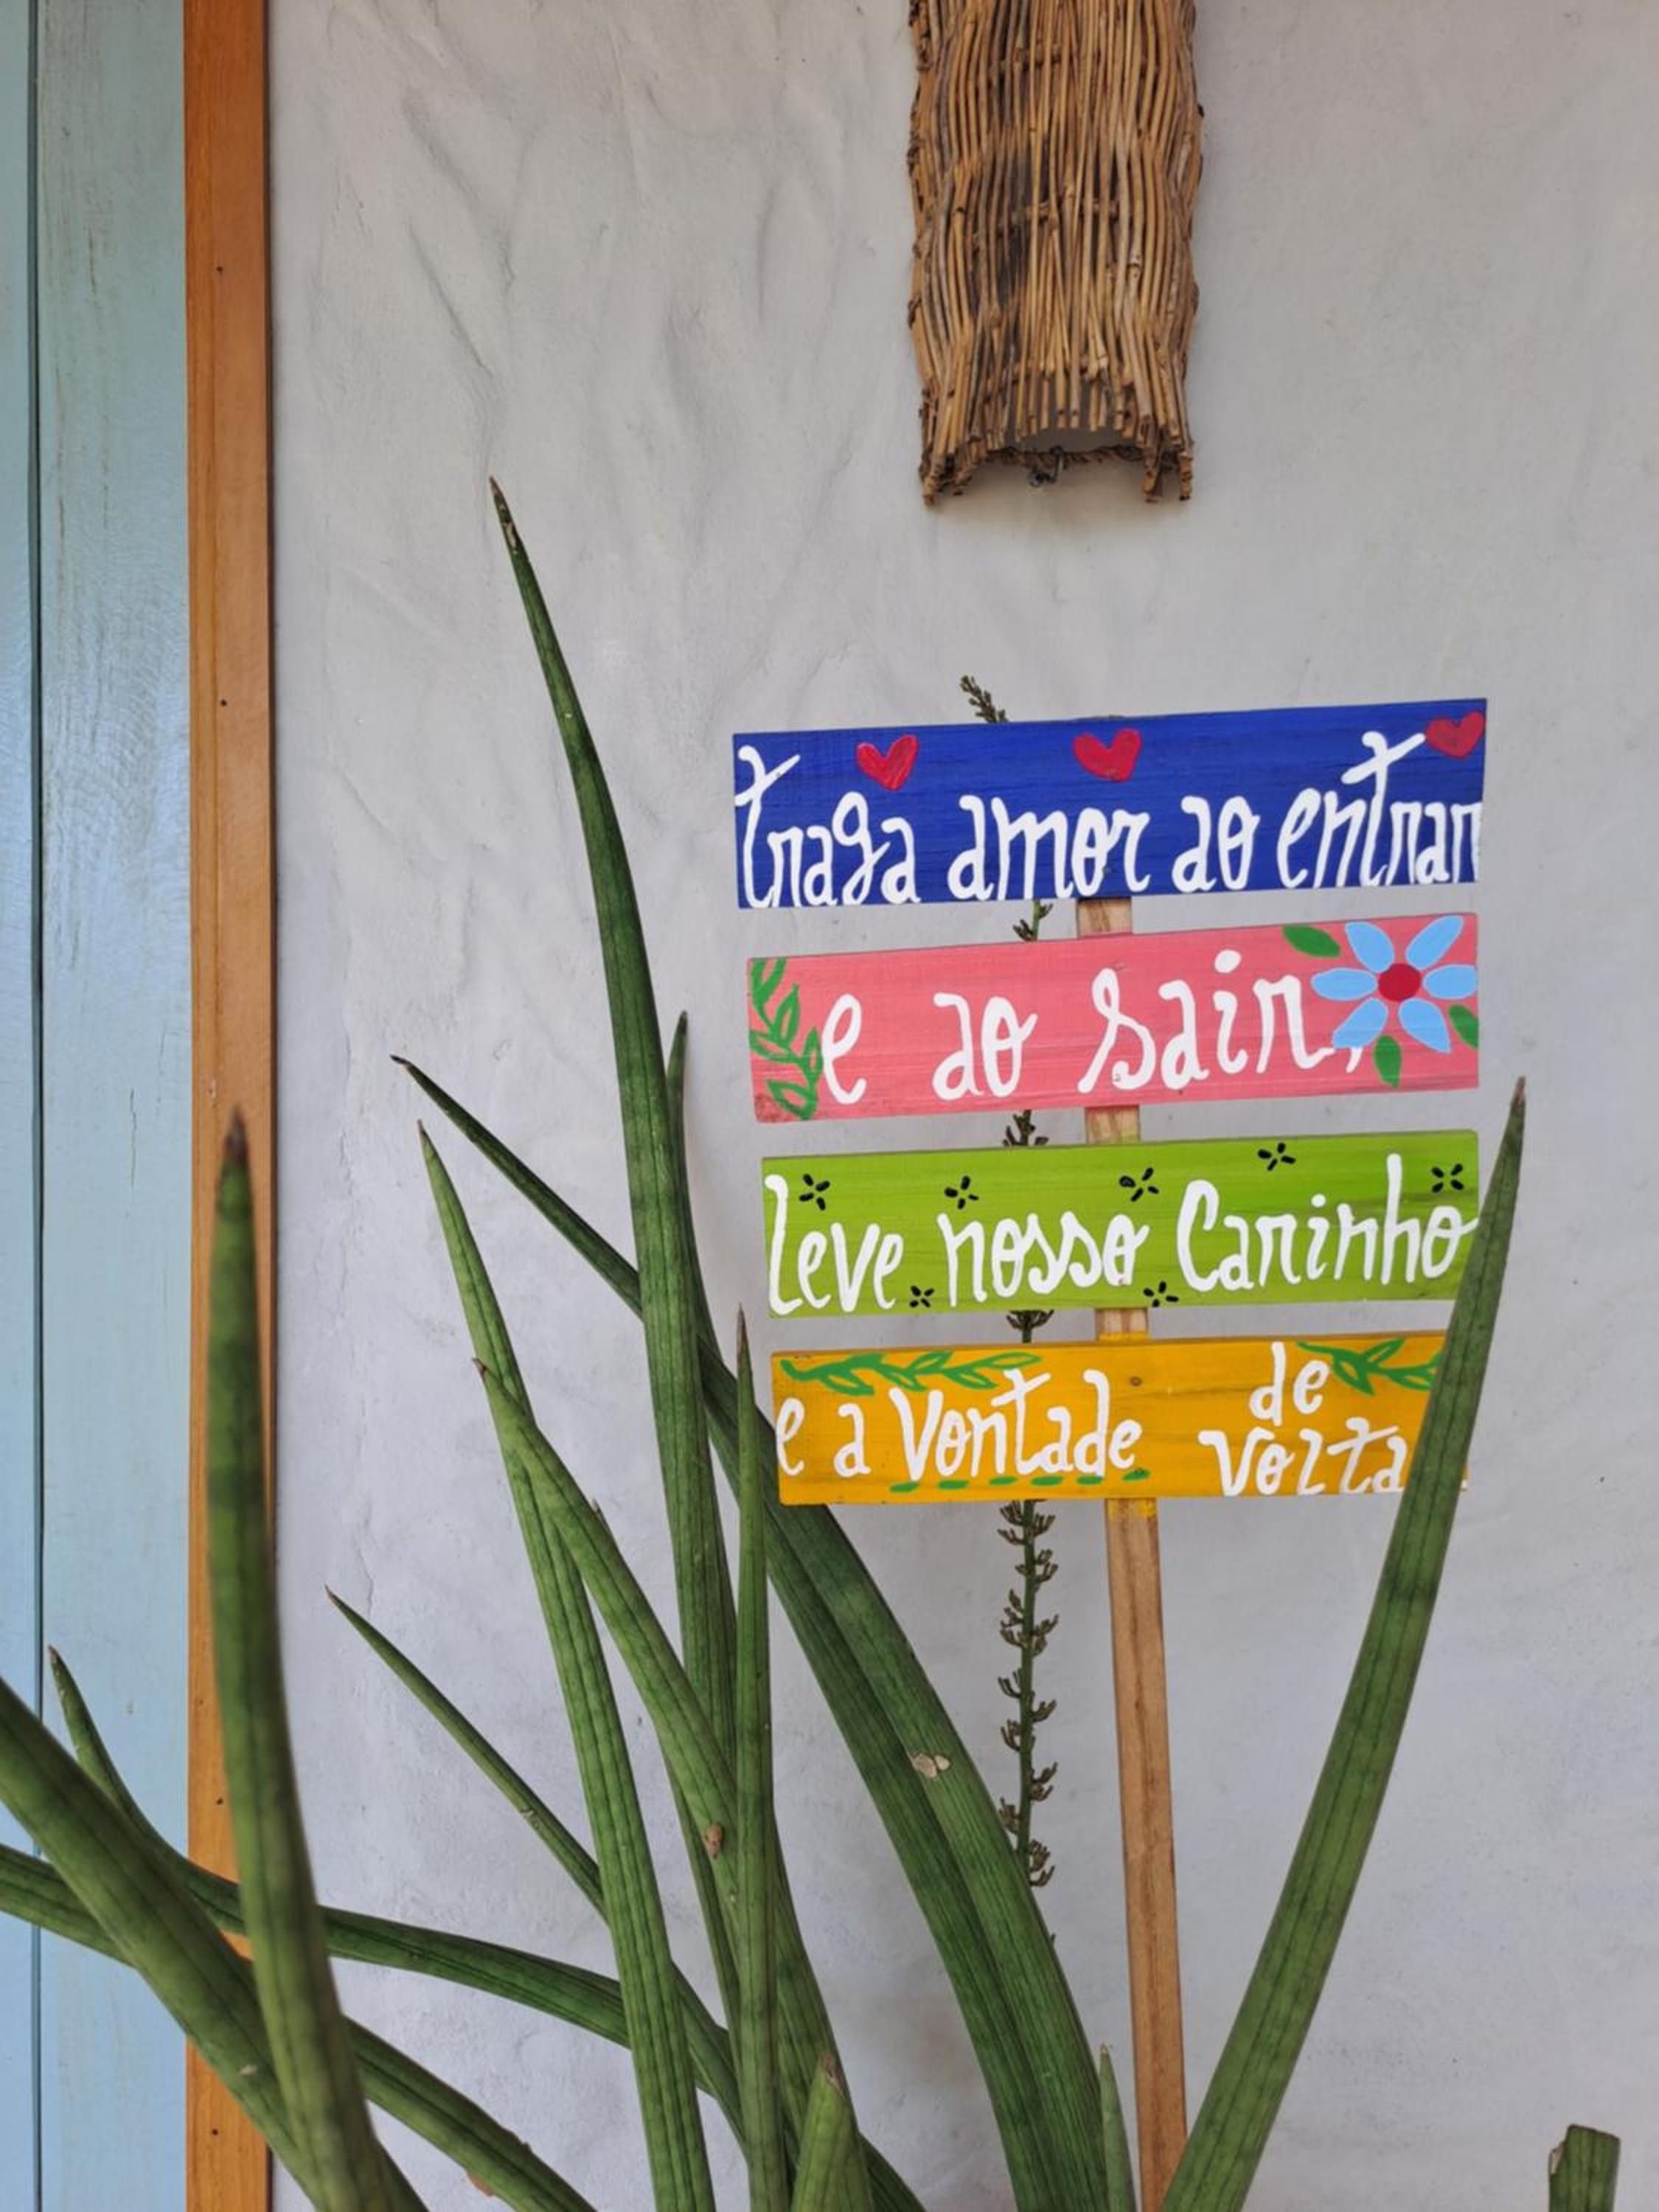 traga amor ao entrar
e ao sair,
Leve nosso Carinho
e a Vontade de
volta